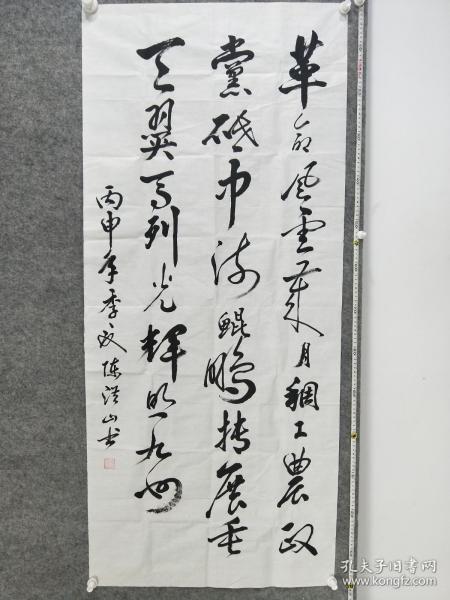 革命风雲岁月稠工農政
黨砥中流鲲鵬展垂
天翼马列光輝照九州
丙申年季夏陈洪山书
孔夫子旧书网
www.kongfz.com